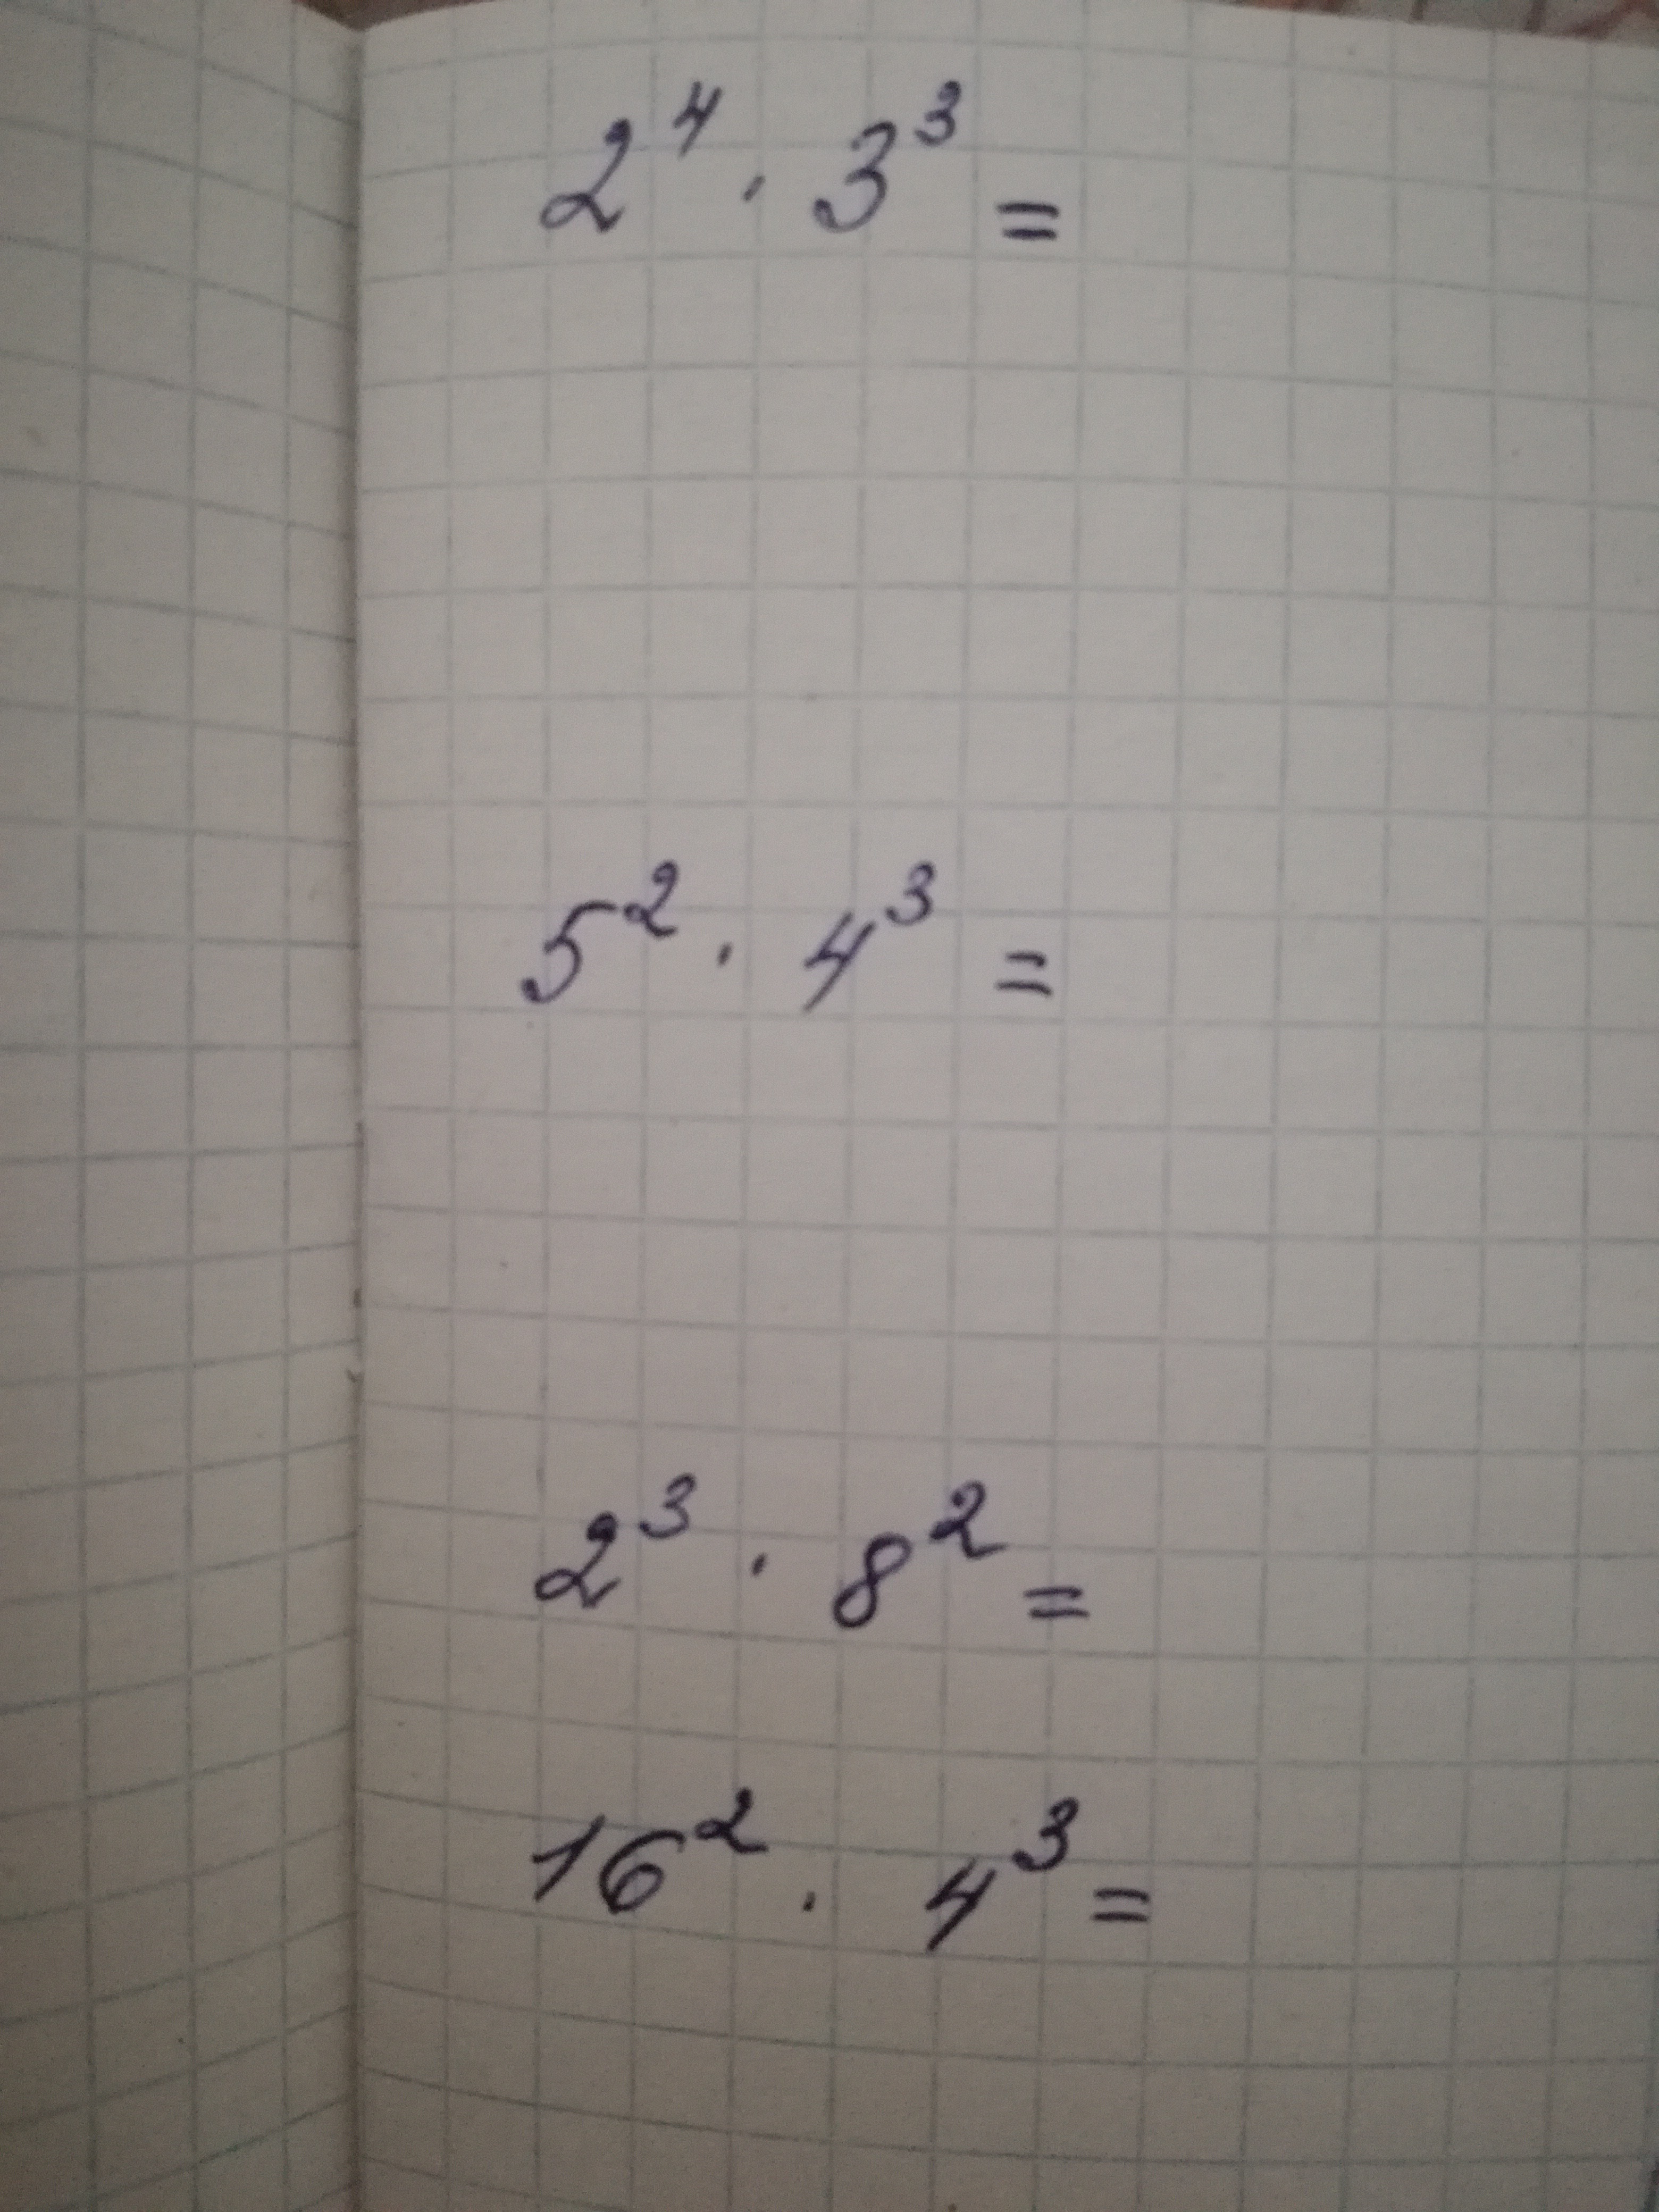 2⁴ · 3³ =
5² · 4³ =
2³ · 8² =
16² · 4³ =